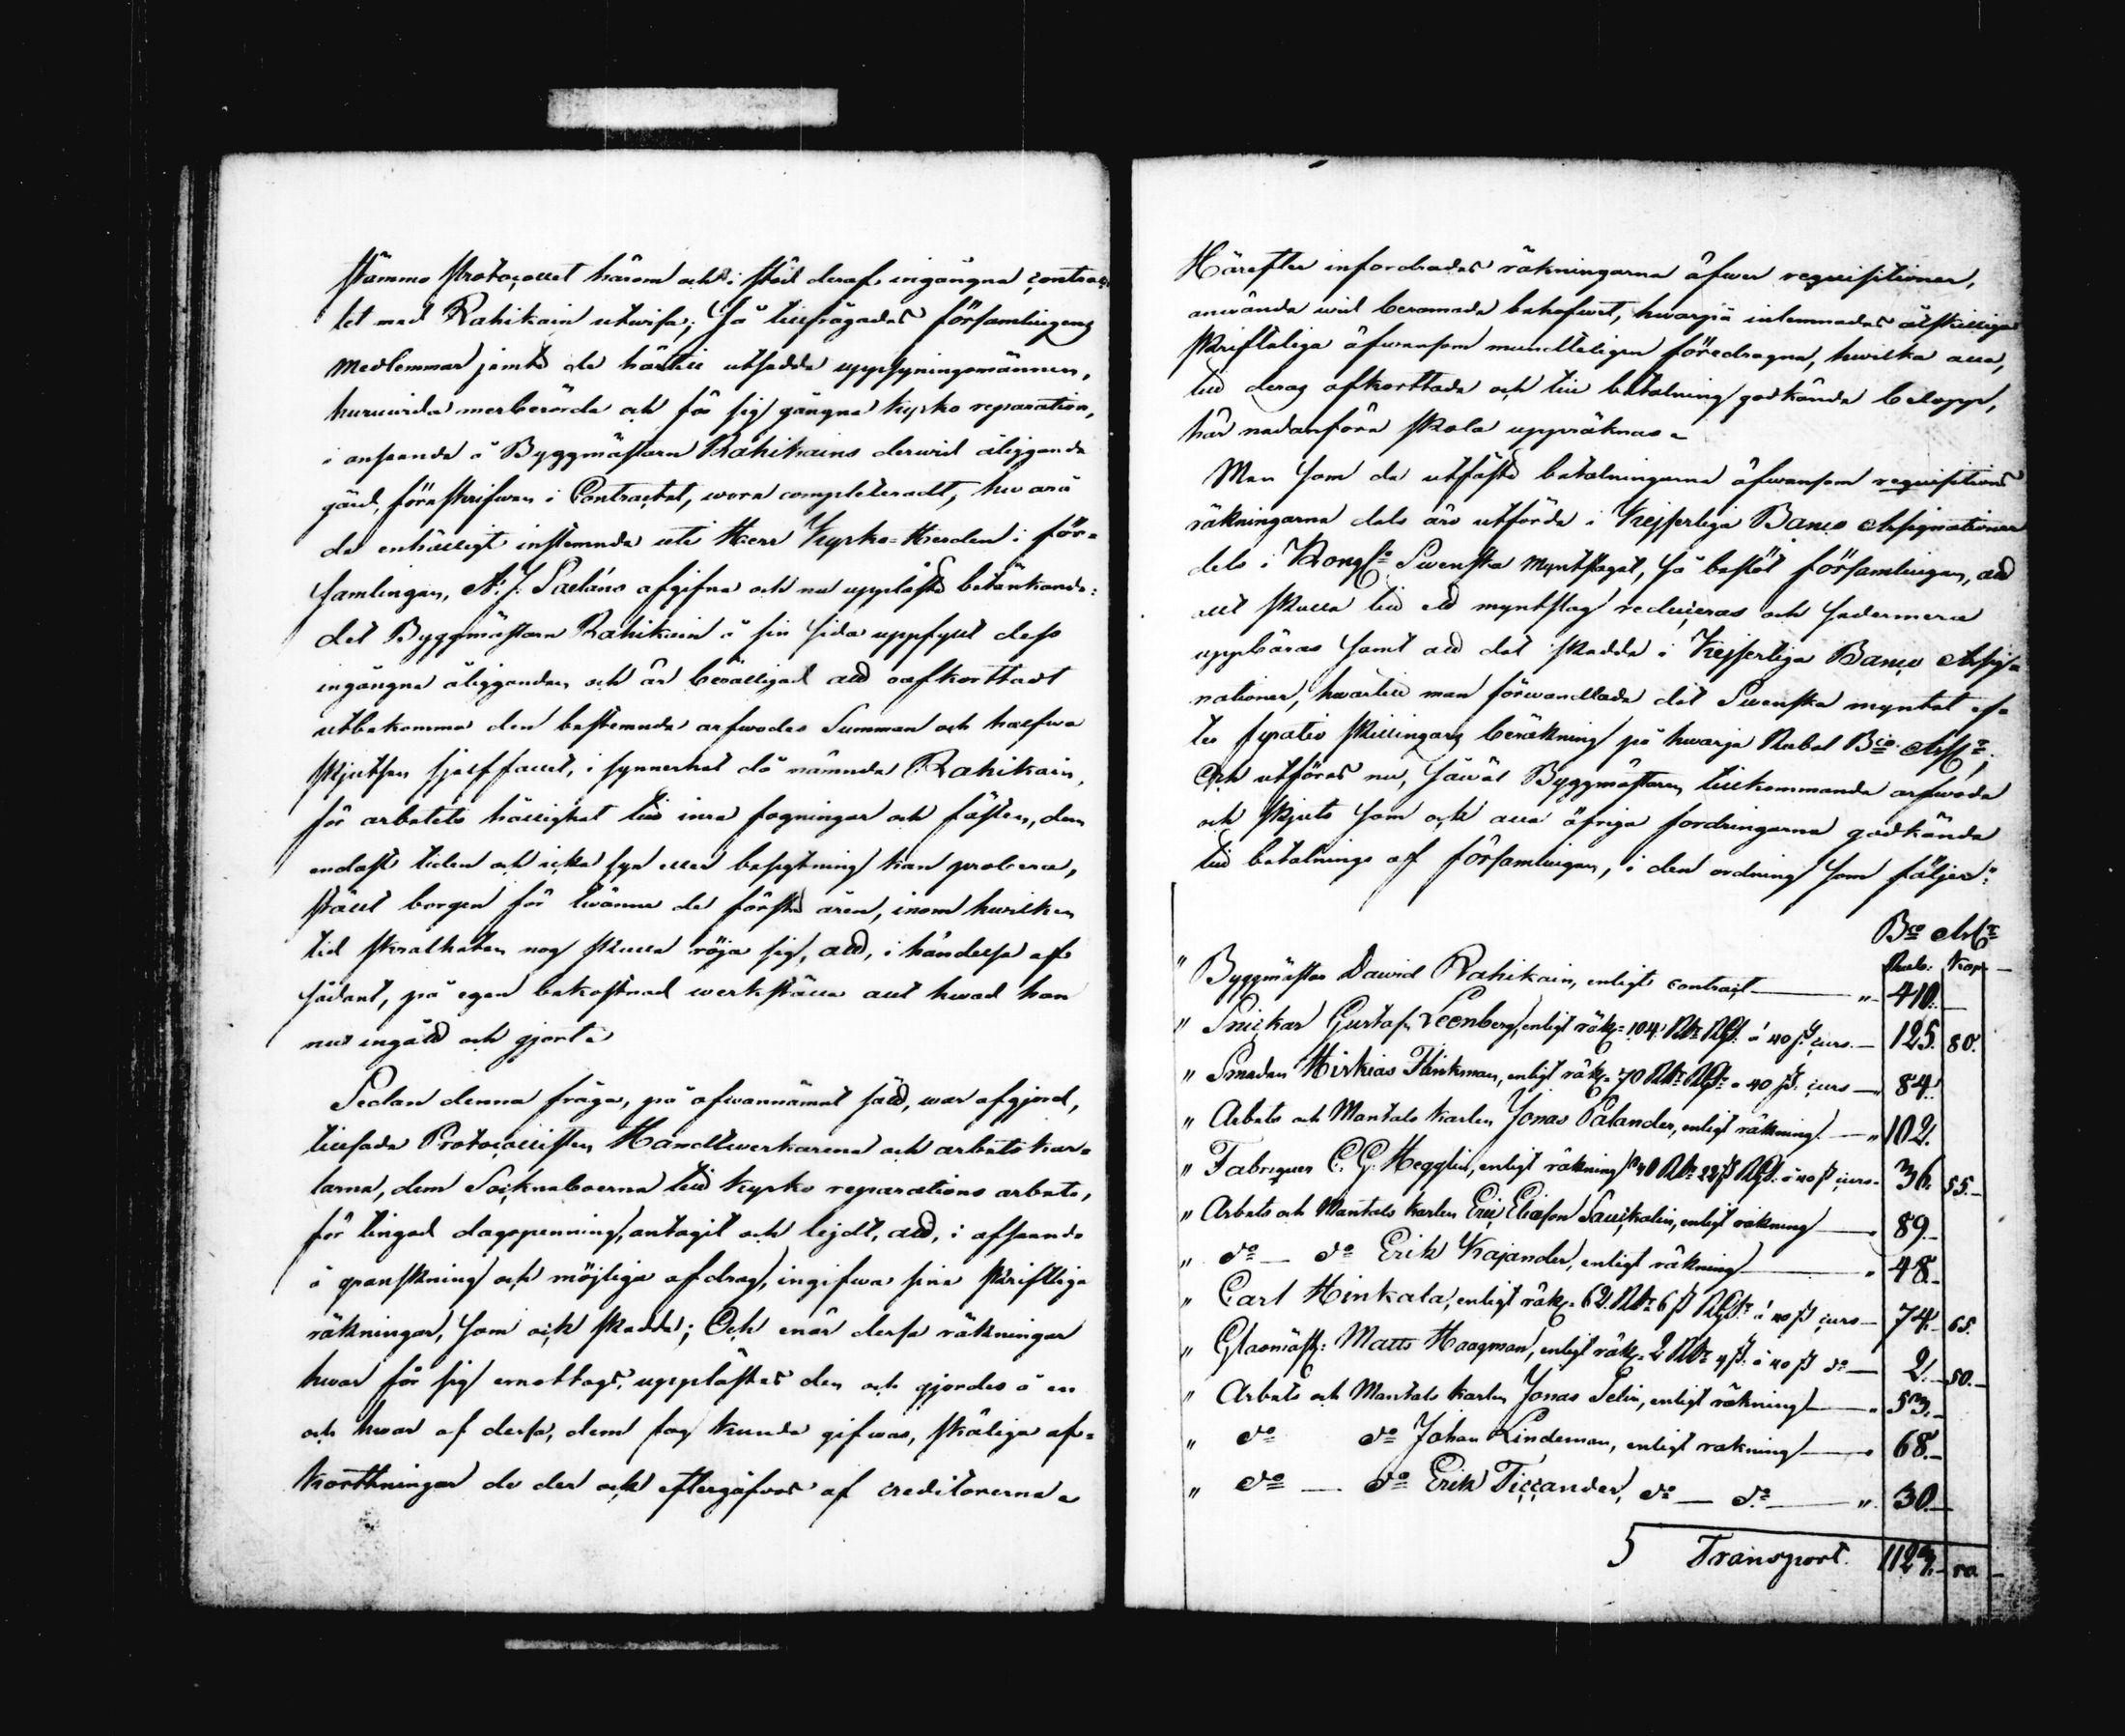 stämmo Protocollet härom och i stöd deraf ingångna contrac-
tet med Rahikain utwisa; Så tillfrågades församlingens
medlemmar jemte de härtill utsedda uppsyningsmännen,
huruvida merberörde och för sig gångna kyrko reparation,
i anseende å Byggmästarn Rahikains derwid åliggande
gärd, föreskrifwen i Contractet, wore completeradt, hwarå
de enhälligt instemnde uti Herr Kyrko-Herden i för-
samlingen, A: J. Paeláns afgifne och nu uppläste betänkande:
det Byggmästarn Rahikain å sin sida uppfyllt dess
ingångne åligganden och är berättigad att oafkorttadt
utbekomma den bestemnde arfwodes Summan och halfwa
skjutsen sjelf fallet, i synnerhet då nämnde Rahikain,
för arbetets hållighet till inre fogningar och fästen, dem
endast tiden och icke syn eller besigtning kan probera,
ställt borgen för twänne de första åren, inom hwilken
tid skralheten nog skulle röja sig, att, i händelse af
sådant, på egen bekostnad werkställa allt hwad han
nu ingått och gjort.
Sedan denna fråga, på ofwannämnt sätt, war afgjord,
tillsade Protocollisten Handtwerkarena och arbets kar-
larna, dem Socknaboerna till kyrko reparations arbete,
för tingad dagspenning, antagit och lejdt, att, i afseende
å granskning och möjliga afdrag, ingifwa sina skriftliga
räkningar, som ock skedde; Och enär dessa räkningar
hwar för sig emottogs, upplästes den och gjordes å en
och hwar af dessa, dem fog kunde gifwas, skäliga af-
korttningar de der ock eftergåfwos af creditorerna.
Härefter infordrades räkningarna öfwer requisitioner,
använde wid beramade behofwet, hwarpå inlemnades åtskillige
skrifteliga äfwensom mundteligen föredragna, hwilka alla,
till deras afkorttade och till betalning godkände belopp,
här nedanföre skola uppräknas.
Men som de utfäste betalningarna äfwensom requisitions
räkningarna dels äro utförde i Kejserliga Banco Assignationer
dels i Kongl. Swenska Myntslaget, så beslöt församlingen, att
allt skulle till ett myntslag reduceras och sedermera
uppbäras samt att det skedde i Kejserliga Banco Assig-
nationer, hwartill man förwandlade det Swenska myntet ef-
ter fyratio skillingars beräkning på hwarje Rubel Bco Ass:
Och utföres nu, såwäl Byggmästarn tillkommande arfwode
och skjuts som ock alla öfriga fordringarna godkände
till betalnings af församlingen, i den ordning som följer:
Bco Ass:
Rub: Kop
" Byggmästar Dawid Rahikain, enligt contract — " 410. —
" Snickar Gustaf Leenberg, enligt räkg: 104 Rdr RGs: à 40 s curs. — 125. 80.
" Smeden Hiskias Flinkman, enligt räkg: 70 Rdr RGs: à 40 s: curs — 84.
" Arbets och Mantals karlen Jonas Palander, enligt räkning — " 102.
" Fabriquer C. G. Hegglin, enligt räkning 40 Rdr 22 s RGs: à 40 s curs 36. 55. —
" Arbets och Mantals karlen Eric Eliæson Sauckolin, enligt räkning — " 89. —
" do — do Erik Kajander, enligt räkning — " 48. —
" Carl Hinkala, enligt räkg: 62 Rdr 6 s RGs: à 40 s curs — 74. 65.
" Glasmäst: Matts Haagman, enligt räkg: 2 Rdr 4 s: à 40 s do — 2. 50. —
" Arbets och Mantals karlen Jonas Pelin, enligt räkning — " 53. —
" do do Johan Lindeman, enligt räkning — " 68. —
" do — do Erik Ticcander, do — do — " 30. —
Transport. 1123. 50